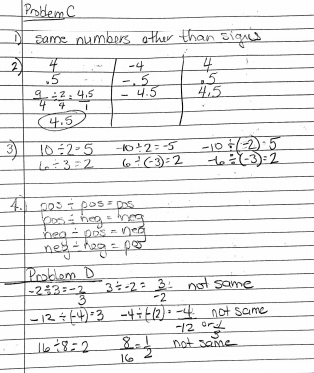 Problem C
1) same numbers other than signs
2) 4 -4 4
.5 -.5 .5
9/4 ÷ 2/4 = 4.5/1 -4.5 4.5
4.5
3) 10÷2=5 -10÷2=-5 -10÷(-2)=5
6÷3=2 6÷(-3)=2 -6÷(-3)=2
4. pos ÷ pos = pos
pos ÷ neg = neg
neg ÷ pos = neg
neg ÷ neg = pos
Problem D
-2÷3=-2/3 3÷-2=3/-2 not same
-12÷(-4)=3 -4÷(-12)=-4/-12 or 1/3 not same
16÷8=2 8/16=1/2 not same